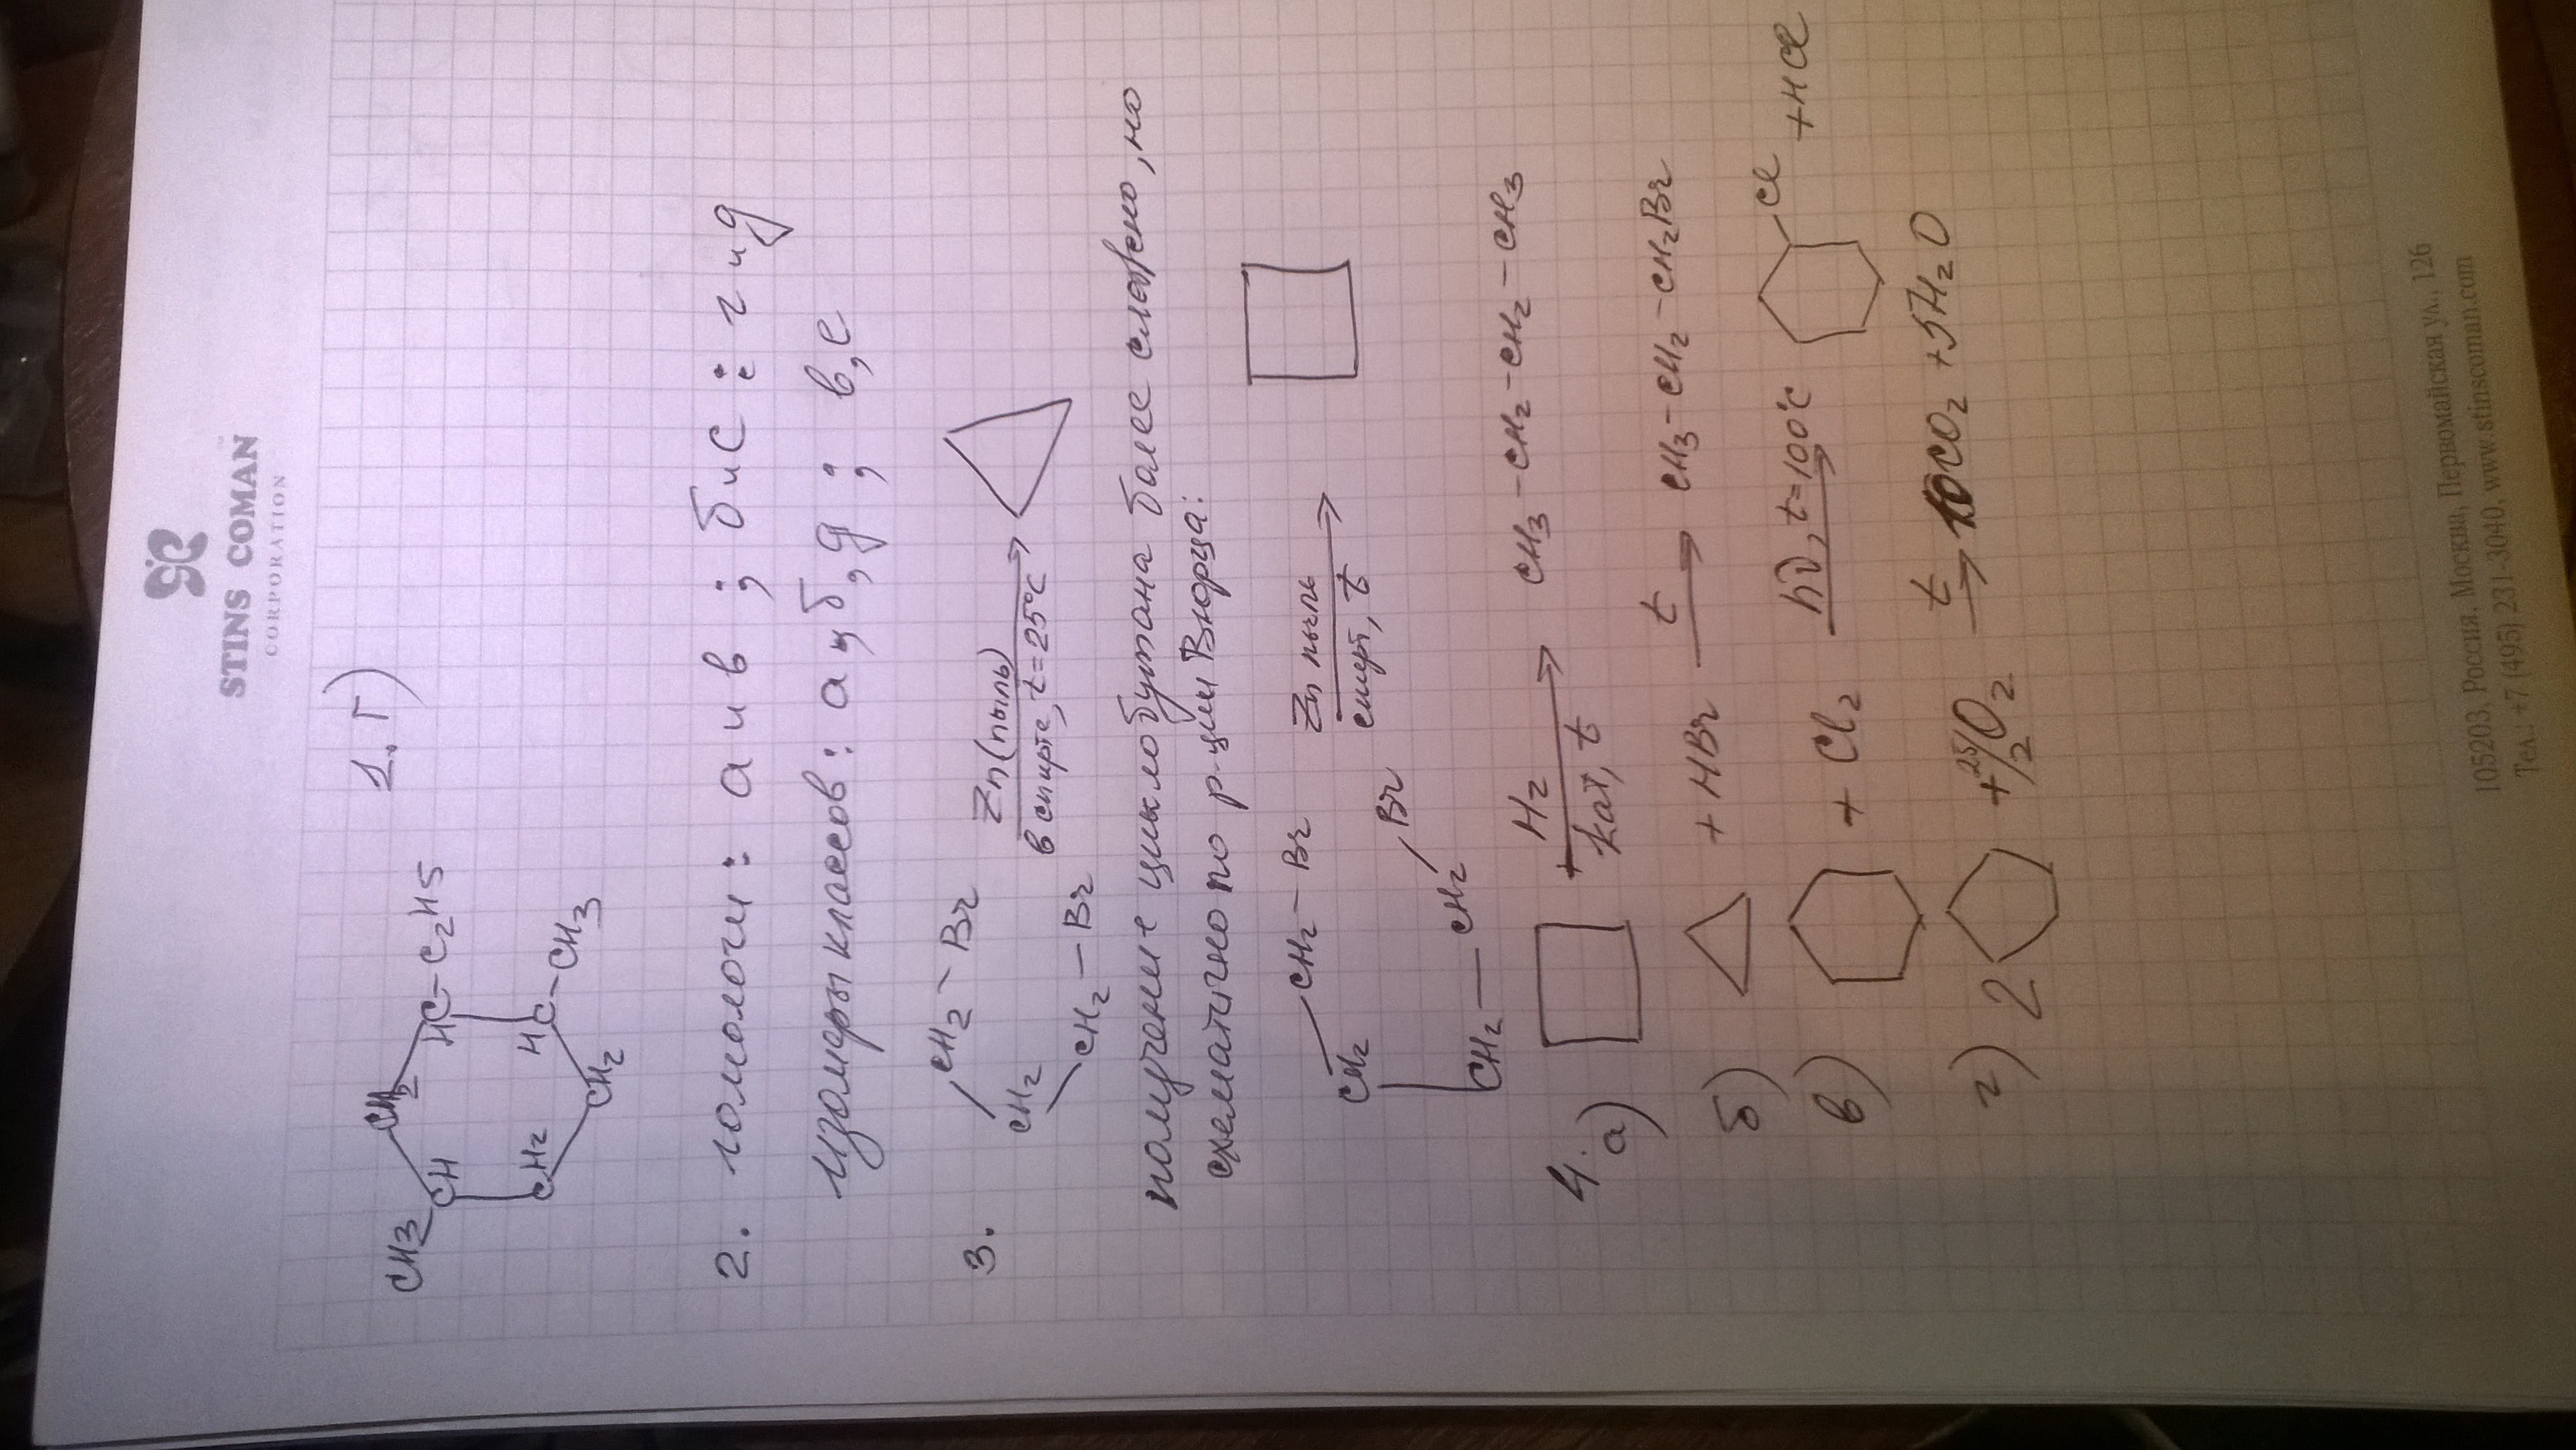 STINS COMAN
CORPORATION
1. г)
CH2
CH3 CH HC-C2H5
CH2 HC-CH3
CH2
2. гомологи: а и в ; б и с : г и д
изомеры классов: а и б, д ; в, е
3. CH2-Br Zn(пыль)
CH2 в спирте, t=25°C
CH2-Br
получение циклобутана более сложно, но
схематично по р-ции Вюрца:
CH2-CH2-Br Zn пыль
спирт, t
CH2-CH2-Br
4.
а) +H2 кат, t CH3-CH2-CH2-CH2-CH3
б) +HBr t CH3-CH2-CH2Br
в) + Cl2 hν, t=100°C Cl +HCl
г) 2 + 25/2 O2 t 10CO2 +5H2O
105203, Россия, Москва, Первомайская ул., 126
Тел.: +7 (495) 231-3040, www.stinscoman.com